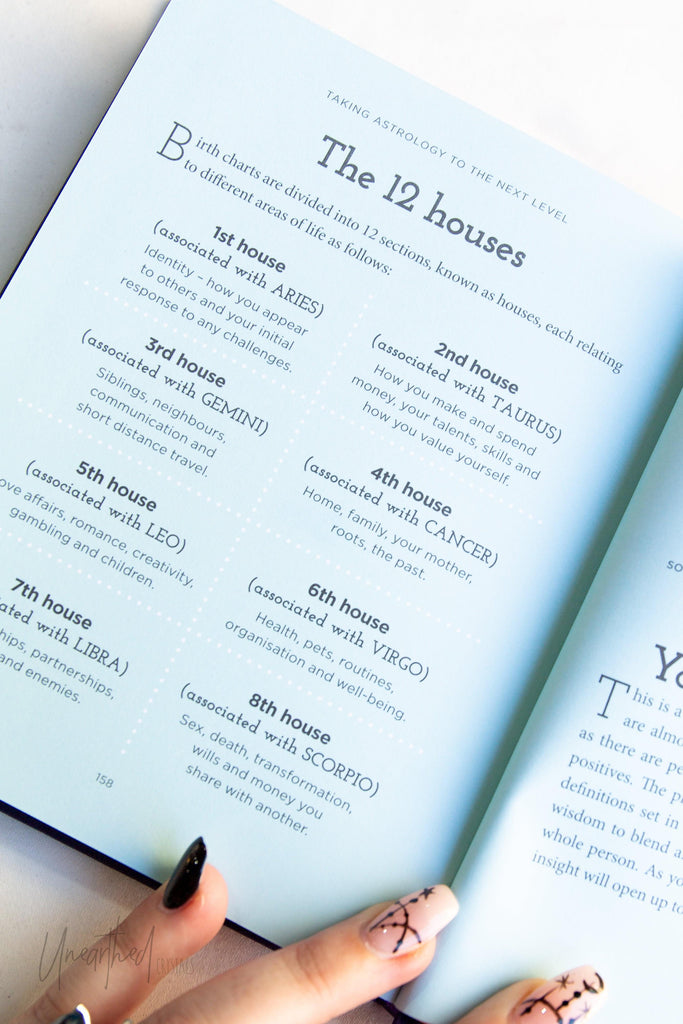 TAKING ASTROLOGY TO THE NEXT LEVEL
The 12 houses
Birth charts are divided into 12 sections, known as houses, each relating
to different areas of life as follows:
1st house
(associated with ARIES)
Identity – how you appear
to others and your initial
response to any challenges.
2nd house
(associated with TAURUS)
How you make and spend
money, your talents, skills and
how you value yourself.
3rd house
(associated with GEMINI)
Siblings, neighbours,
communication and
short distance travel.
4th house
(associated with CANCER)
Home, family, your mother,
roots, the past.
5th house
(associated with LEO)
affairs, romance, creativity,
gambling and children.
6th house
(associated with VIRGO)
Health, pets, routines,
organisation and well-being.
7th house
with LIBRA)
partnerships,
and enemies.
8th house
(associated with SCORPIO)
Sex, death, transformation,
wills and money you
share with another.
158
This is a
are
as there are
positives. The
definitions set in
wisdom to blend
whole person. As
insight will open up to
Unearthed
CRYSTALS